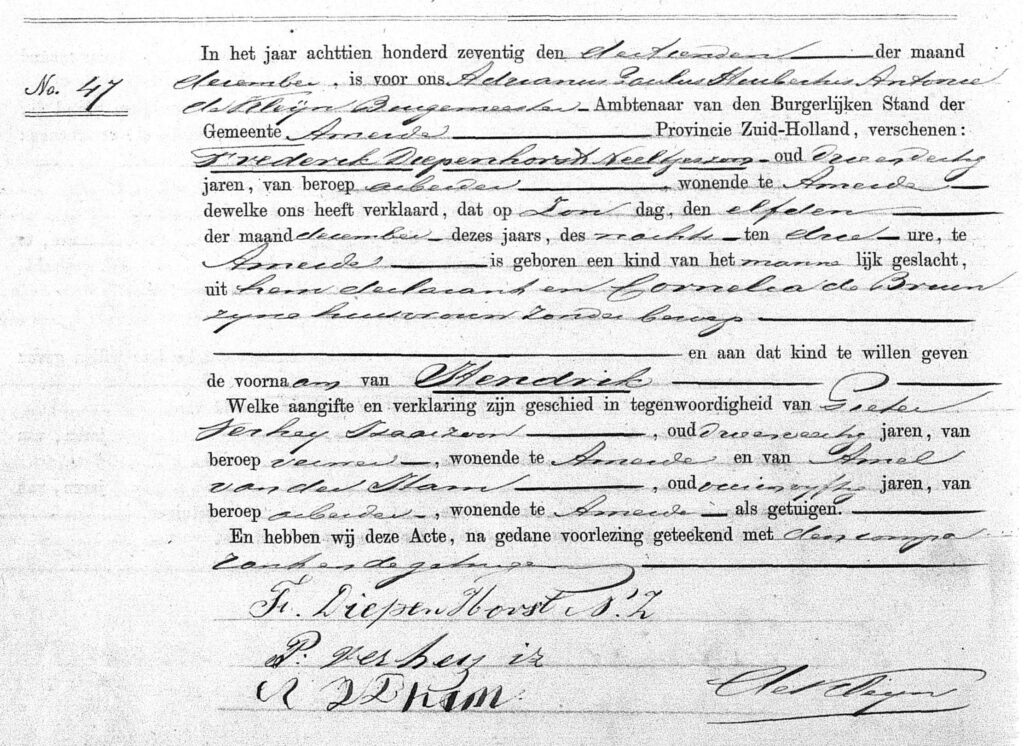 In het jaar achttien honderd zeventig den dertienden der maand
No. 47
december, is voor ons Adrianus Paulus Huubertus Antonie
de Kleijn Burgemeester Ambtenaar van den Burgerlijken Stand der
Gemeente Ameide Provincie Zuid-Holland, verschenen:
Frederik Diepenhorst Neeltjeszoon oud drieendertig
jaren, van beroep arbeider, wonende te Ameide
dewelke ons heeft verklaard, dat op Zon dag, den elfden
der maand december dezes jaars, des nachts ten drie ure, te
Ameide is geboren een kind van het manne lijk geslacht,
uit hem declarant en Cornelia de Bruin
zyne huisvrouw zonder beroep
en aan dat kind te willen geven
de voornaam van Hendrik
Welke aangifte en verklaring zijn geschied in tegenwoordigheid van Pieter
Verhey Izaakzoon, oud jaren, van
beroep, wonende te Ameide en van Amel
van der Ham, oud jaren, van
beroep arbeider, wonende te Ameide als getuigen.
En hebben wij deze Acte, na gedane voorlezing geteekend met den compa
rant en de getuigen
Fr. Diepenhorst N.Z
P. verhey iz
A VD ham
de Kleijn